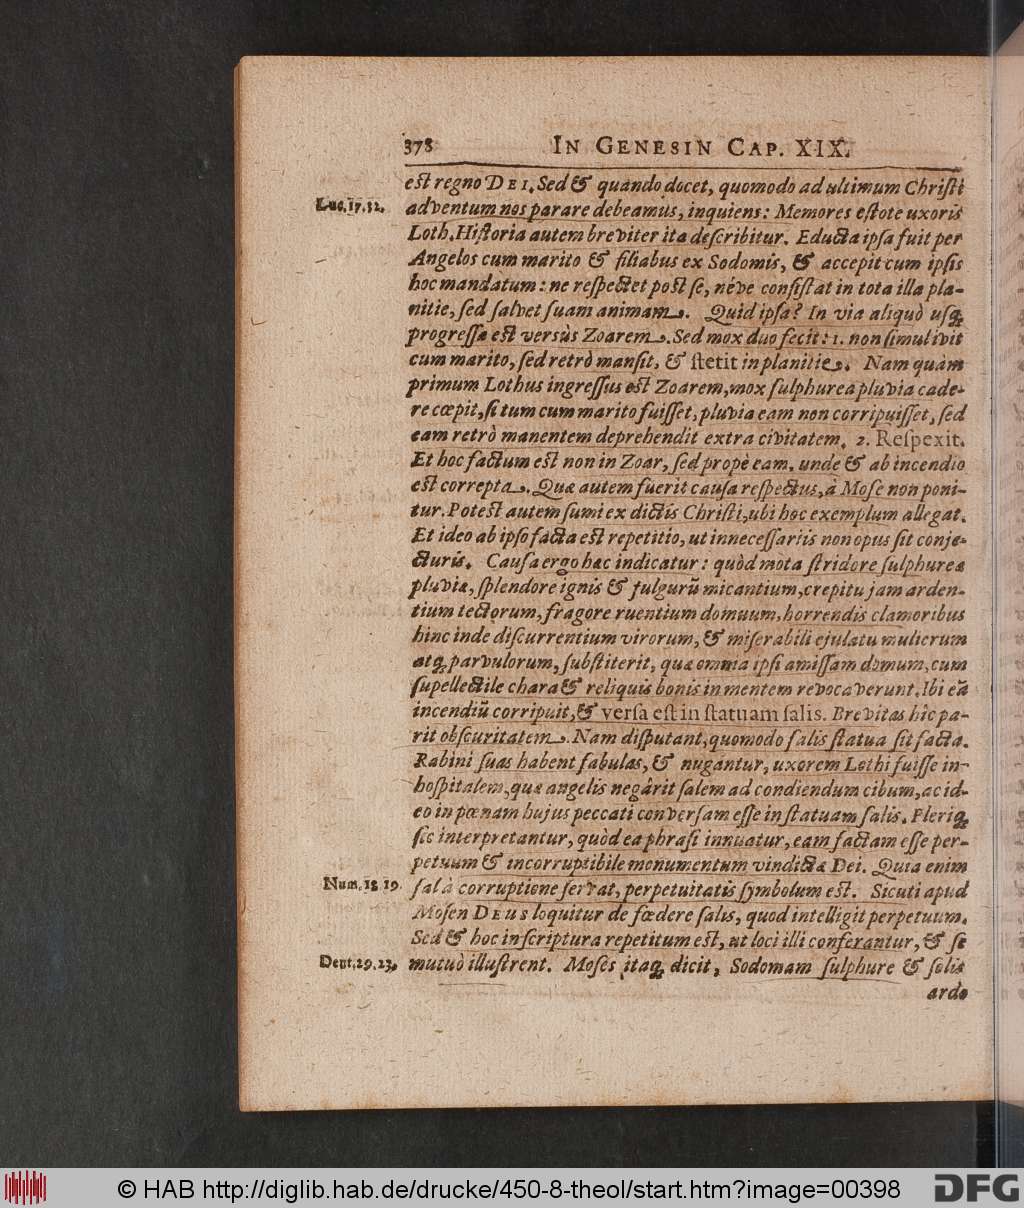 378 IN GENESIN CAP. XIX.
est regno DEI. Sed & quando docet, quomodo ad ultimum Christi
Luc. 17. 32. adventum nos parare debeamus, inquiens: Memores estote uxoris
Loth. Historia autem breviter ita describitur. Educta ipsa fuit per
Angelos cum marito & filiabus ex Sodomis, & accepit cum ipsis
hoc mandatum: ne respectet post se, néve consistat in tota illa pla-
nitie, sed salvet suam animam. Quid ipsa? In via aliquò usq;
progressa est versùs Zoarem. Sed mox duo fecit: 1. non simul ivit
cum marito, sed retrò mansit, & stetit in planitie. Nam quàm
primum Lothus ingressus est Zoarem, mox sulphurea pluvia cade-
re cœpit, si tum cum marito fuisset, pluvia eam non corripuisset, sed
eam retrò manentem deprehendit extra civitatem. 2. Respexit.
Et hoc factum est non in Zoar, sed propè eam. unde & ab incendio
est correpta. Quæ autem fuerit causa respectus, à Mose non poni-
tur. Potest autem sumi ex dictis Christi, ubi hoc exemplum allegat.
Et ideo ab ipso facta est repetitio, ut innecessariis non opus sit conje-
cturis. Causa ergo hæc indicatur: quòd mota stridore sulphureæ
pluviæ, splendore ignis & fulgurũ micantium, crepitu jam arden-
tium tectorum, fragore ruentium domuum, horrendis clamoribus
hinc inde discurrentium virorum, & miserabili ejulatu mulierum
atq; parvulorum, substiterit, quæ omnia ipsi amissam domum, cum
supellectile chara & reliquis bonis in mentem revocaverunt. Ibi eã
incendiũ corripuit, & versa est in statuam salis. Brevitas hîc pa-
rit obscuritatem. Nam disputant, quomodo salis statua sit facta.
Rabini suas habent fabulas, & nugantur, uxorem Lothi fuisse in-
hospitalem, quæ angelis negârit salem ad condiendum cibum, ac id-
eo in pœnam hujus peccati conversam esse in statuam salis. Pleriq;
sic interpretantur, quòd ea phrasi innuatur, eam factam esse per-
petuum & incorruptibile monumentum vindictæ Dei. Quia enim
Num. 18. 19. sal à corruptione servat, perpetuitatis symbolum est. Sicuti apud
Mosen DEUS loquitur de fœdere salis, quod intelligit perpetuum.
Sed & hoc in scriptura repetitum est, ut loci illi conferantur, & se
Deut. 29. 23. mutuò illustrent. Moses itaq; dicit, Sodomam sulphure & solis
ardo
© HAB http://diglib.hab.de/drucke/450-8-theol/start.htm?image=00398
DFG